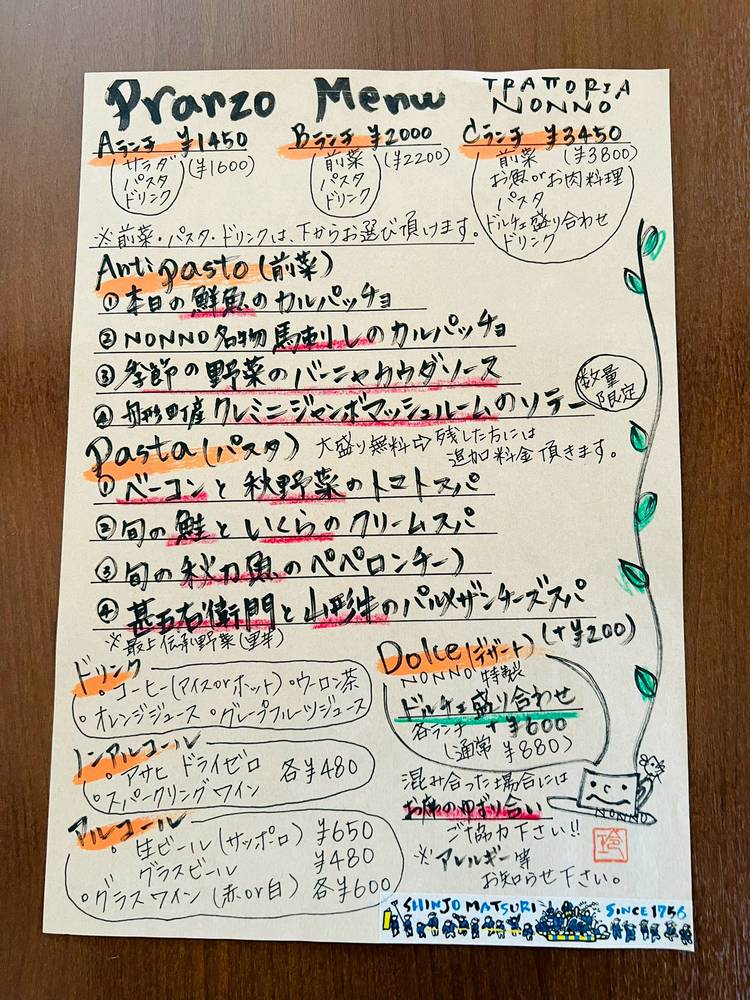 Pranzo Menu
TRATTORIA
NONNO
Aランチ ¥1450
(¥1600)
サラダ
パスタ
ドリンク
Bランチ ¥2000
(¥2200)
前菜
パスタ
ドリンク
Cランチ ¥3450
前菜 (¥3800)
お魚orお肉料理
パスタ
ドルチェ盛り合わせ
ドリンク
※前菜・パスタ・ドリンクは、下からお選び頂けます。
Antipasto(前菜)
①本日の鮮魚のカルパッチョ
②NONNO名物馬刺しのカルパッチョ
③季節の野菜のバーニャカウダソース
④舟形町産クレミニジャンボマッシュルームのソテー
数量
限定
Pasta(パスタ) 大盛り無料⇨残した方には
追加料金頂きます。
①ベーコンと秋野菜のトマトスパ
②旬の鮭といくらのクリームスパ
③旬の秋刀魚のペペロンチーノ
④甚五右衛門と山形牛のパルメザンチーズスパ
※最上伝承野菜(里芋) (+¥200)
ドリンク
・コーヒー(アイスorホット)・ウーロン茶
・オレンジジュース・グレープフルーツジュース
ノンアルコール
・アサヒ ドライゼロ 各¥480
・スパークリングワイン
アルコール
・生ビール(サッポロ) ¥650
グラスビール ¥480
・グラスワイン(赤or白) 各¥600
Dolce(デザート)
NONNO特製
ドルチェ盛り合わせ
各ランチ +¥600
(通常 ¥880)
混み合った場合には
お席のゆずり合い
ご協力下さい!!
※アレルギー等
お知らせ下さい。
NONNO
SHINJO MATSURI SINCE1756